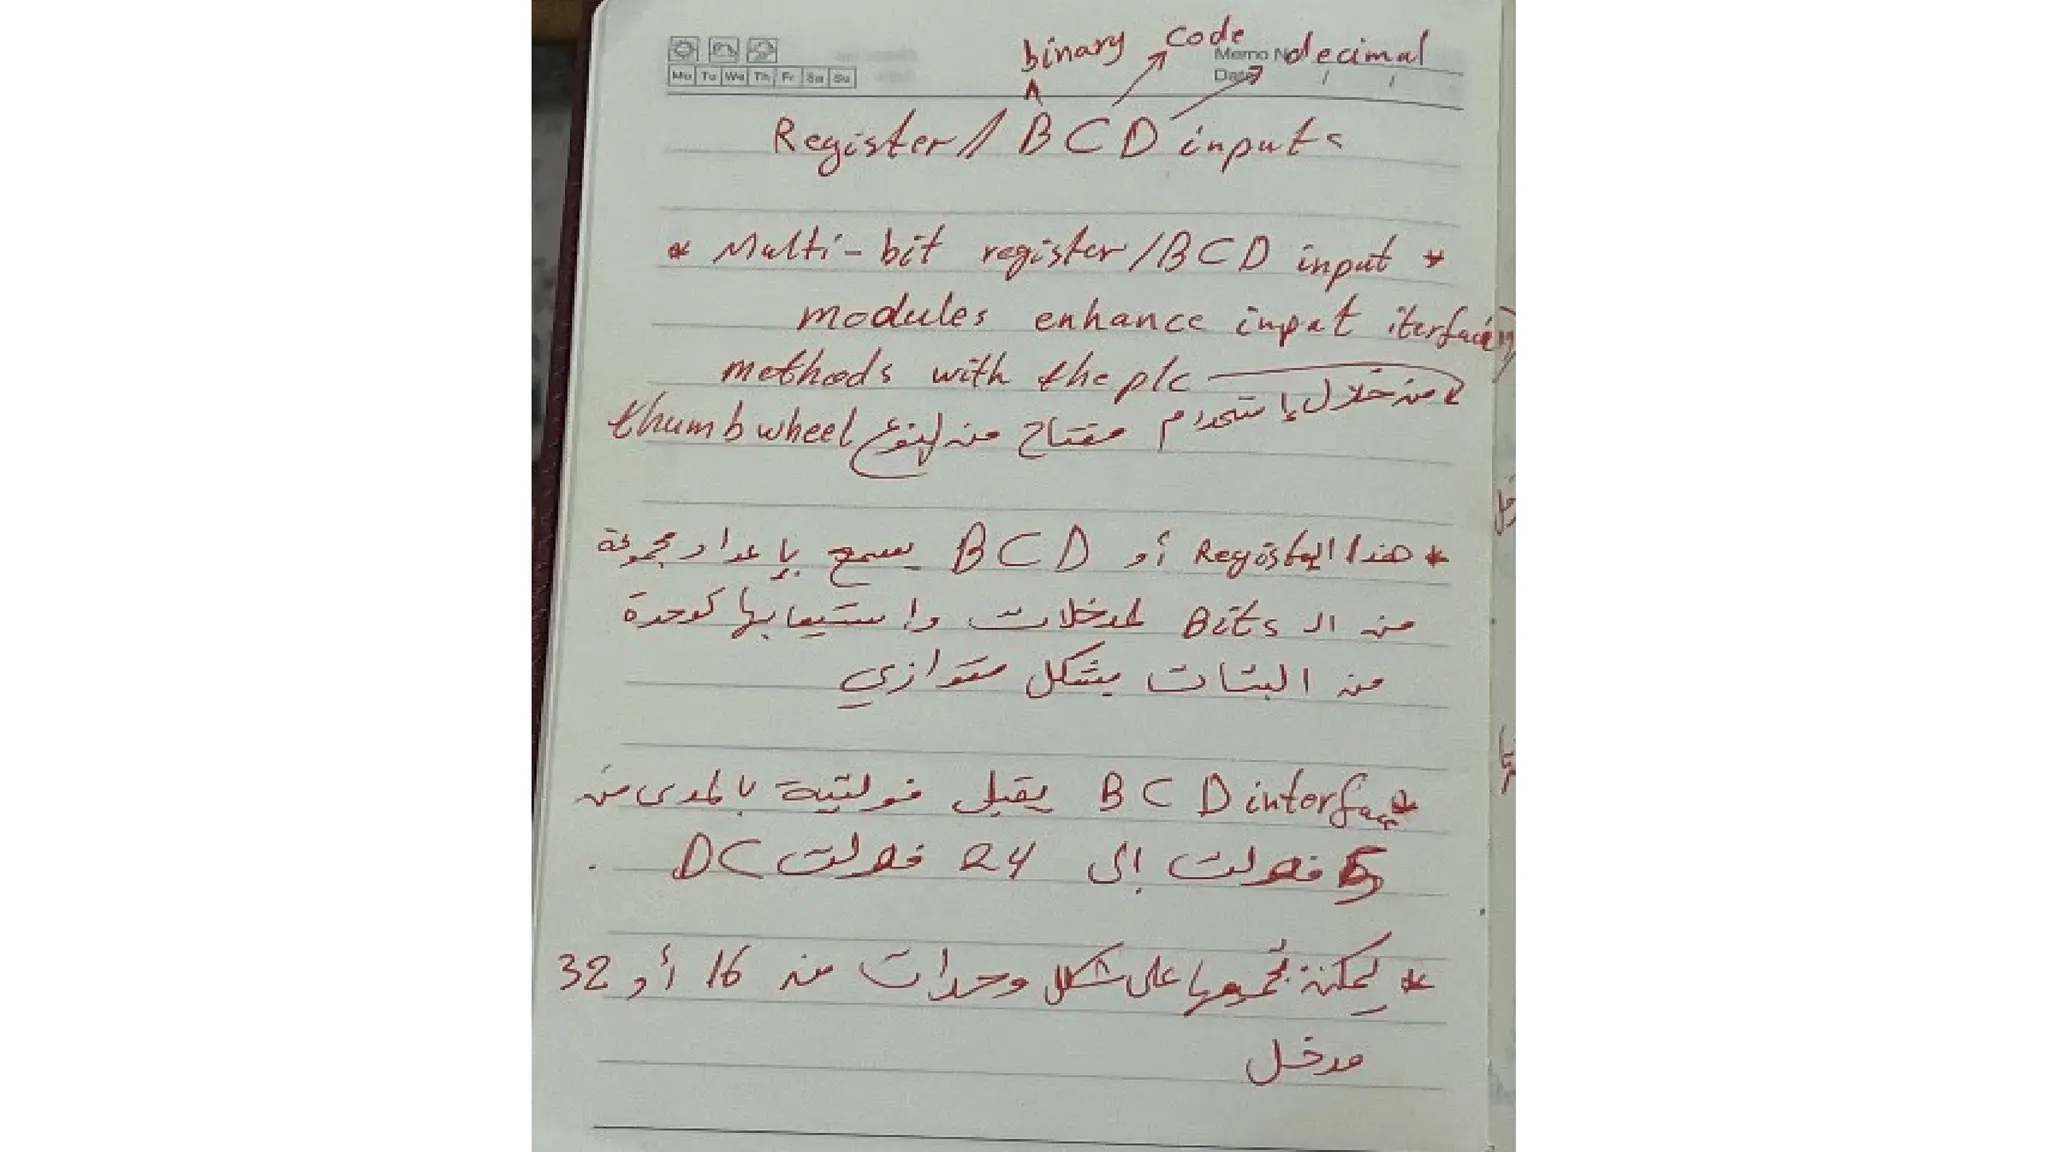 binary code decimal
Memo No
Date
Mo Tu We Th Fr Sa Su
Register/ BCD inputs
* Multi-bit register/BCD input *
modules enhance input iterfacing
methods with the plc
من خلال إستخدام مفتاح من النوع thumbwheel
* هذا الـ Register أو BCD يسمح بإعداد مجموعة
من الـ Bits لمدخلات واستيعابها كوحدة
من البتات بشكل متوازي
* BCD interface يقبل فولتية بالمدى من
5 فولت إلى 24 فولت DC .
* يمكن تجميعها على شكل وحدات من 16 أو 32
مدخل